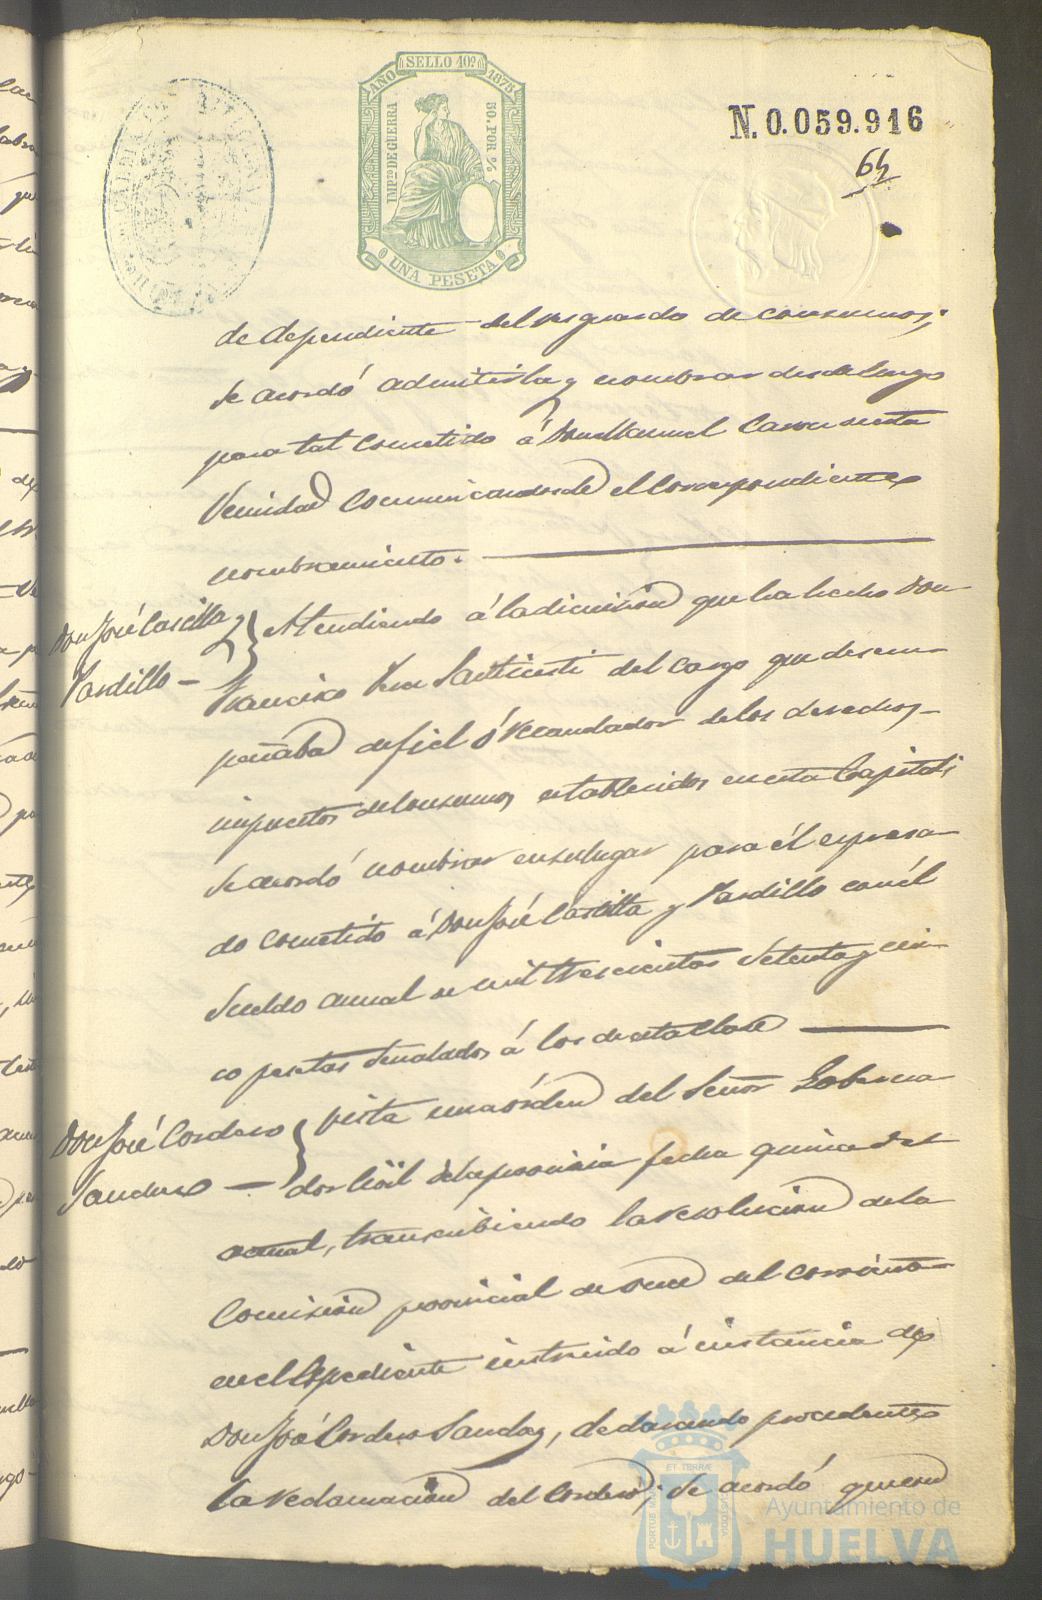 AÑO SELLO 10º 1875
IMPTO DE GUERRA
50 POR %
UNA PESETA
N. 0.059.916
64
de dependiente del resguardo de consumos;
se acordó admitirla y nombrar desde luego
para tal cometido á Don Manuel
Vecindad comunicandosele el correspondiente
nombramiento.
Don José Castilla
y Pardillo
Atendiendo á la dimision que ha hecho Don
Francisco del cargo que desem-
peñaba de fiel ó recaudador de los derechos
impuestos de consumos establecidos en esta Capital;
se acordó nombrar en su lugar para el expresa-
do cometido á Don José Castilla y Pardillo con el
sueldo anual de mil trescientas setenta y cin-
co pesetas señalados á los de esta clase
Don José Cordero
Sanchez
Vista una órden del Señor Goberna-
dor Civil de la provincia fecha quince del
actual, transcribiendo la resolucion de la
Comision provincial de once del corriente
en el Espediente instruido á instancia de
Don José Cordero Sanchez, declarando procedente
la reclamacion del Cordero; se acordó que
PORTUS MARIS ET TERRÆ CUSTODIA
Ayuntamiento de
HUELVA